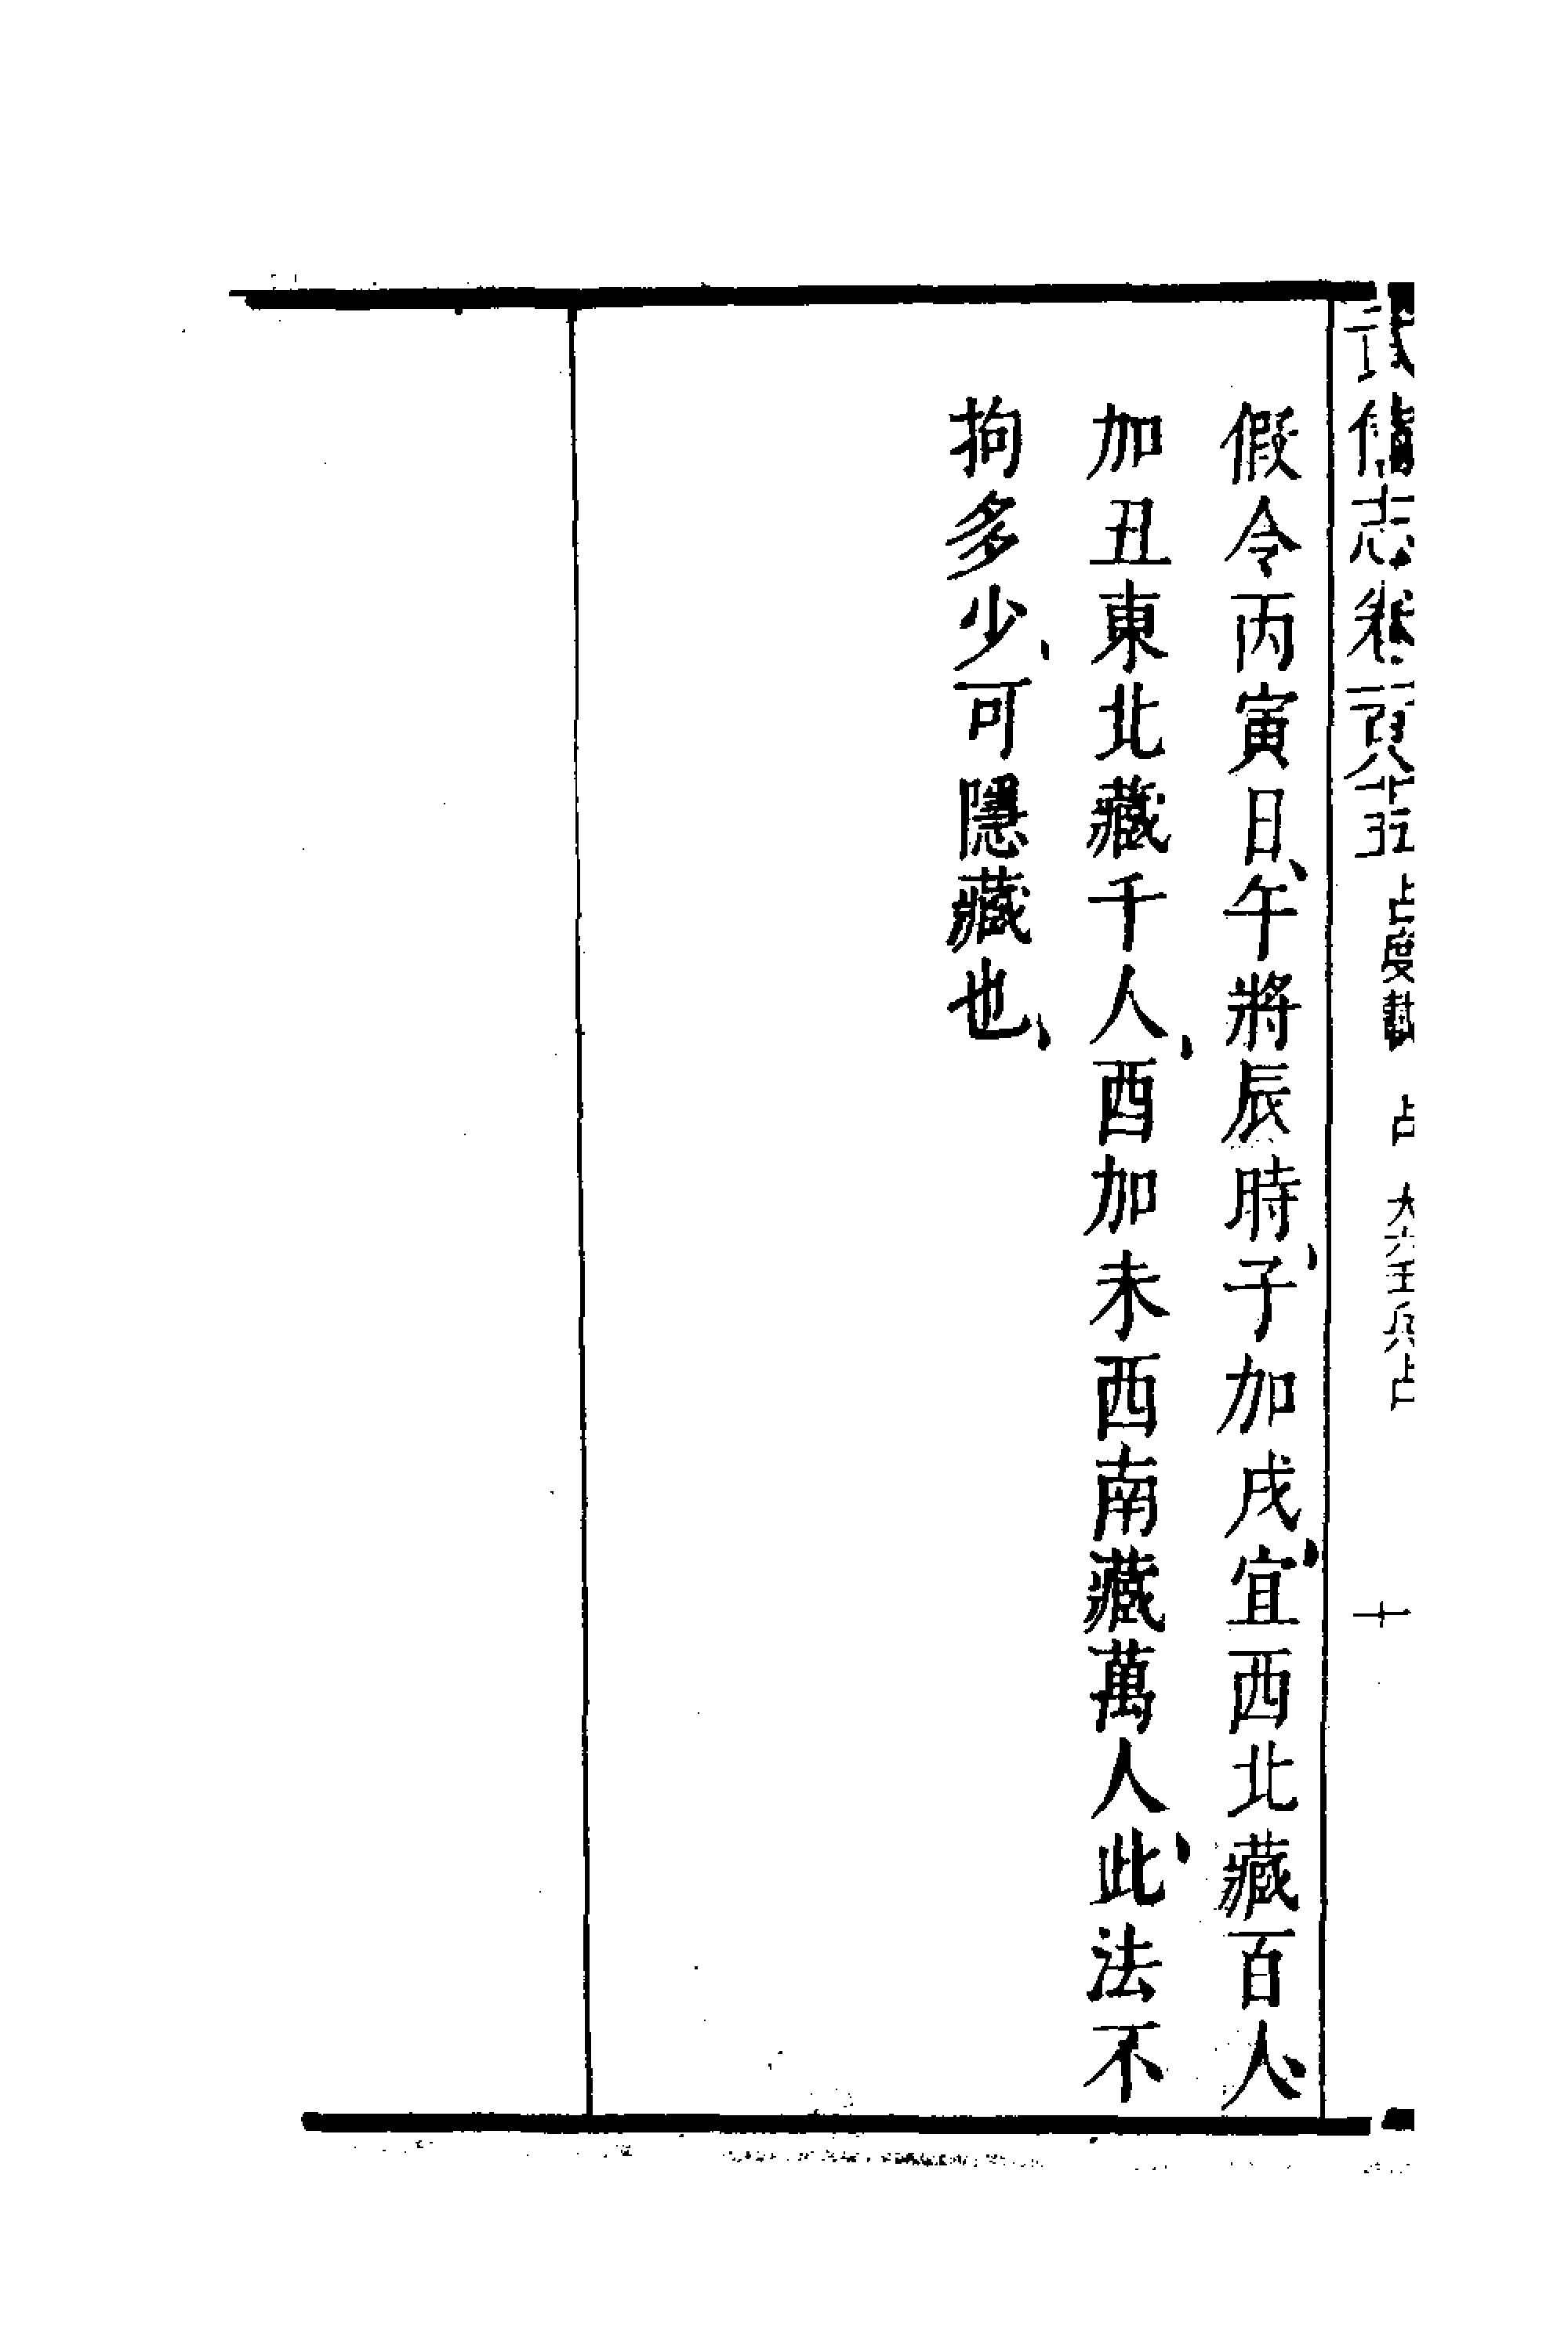 武備志卷一百八十五 占度載 占 大六壬兵占 十
假令丙寅日、午將辰時、子加戌、宜西北藏百人、
加丑東北藏千人、酉加未西南藏萬人、此法不
拘多少、可隱藏也、